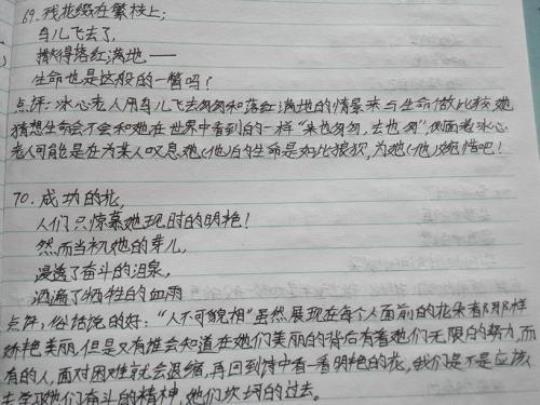 69.残花缀在繁枝上;
鸟儿飞去了,
撒得落红满地——
生命也是这般的一瞥吗?
点评:冰心老人用鸟儿飞去匆匆和落红满地的情景来与生命做比较她
猜想生命会不会和她在世界中看到的一样“来也匆匆,去也匆”,侧面看冰心
老人可能是在为某人叹息她(他)的生命是如此狼狈,为她(他)惋惜吧!
70.成功的花,
人们只惊慕她现时的明艳!
然而当初她的芽儿,
浸透了奋斗的泪泉,
洒遍了牺牲的血雨
点评:俗话说的好:“人不可貌相”虽然展现在每个人面前的花朵都那样
娇艳美丽,但是又有谁会知道在她们美丽的背后有着她们无限的努力,而
有的人,面对困难就会退缩,再回到诗中看一看明艳的花,我们是不是应该
去学习她们奋斗的精神,她们坎坷的过去。